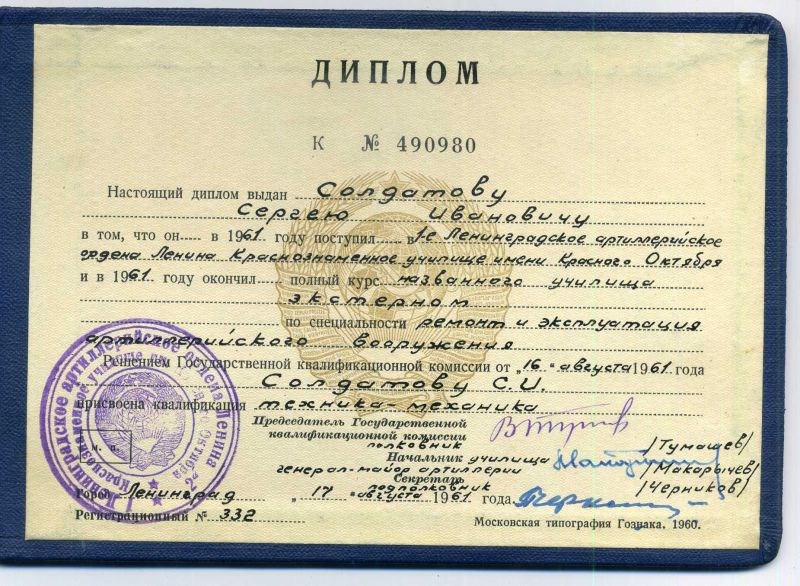 ДИПЛОМ
К № 490980
Настоящий диплом выдан Солдатову
Сергею Ивановичу
в том, что он в 1961 году поступил в 1-е Ленинградское артиллерийское
ордена Ленина Краснознаменное училище имени Красного Октября
и в 1961 году окончил полный курс названного училища
экстерном
по специальности ремонт и эксплуатация
артиллерийского вооружения
Решением Государственной квалификационной комиссии от „16" августа 1961 года
Солдатову С.И.
присвоена квалификация техника-механика
Председатель Государственной
квалификационной комиссии
полковник /Тумашев/
Начальник училища
генерал-майор артиллерии /Макарычев/
Секретарь
подполковник /Черников/
Город Ленинград „17" августа 1961 года.
Регистрационный № 332
Московская типография Гознака. 1960.